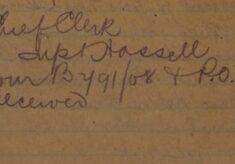 hief Clerk
Supt Hassell
our B 491/08 & P.O.
received